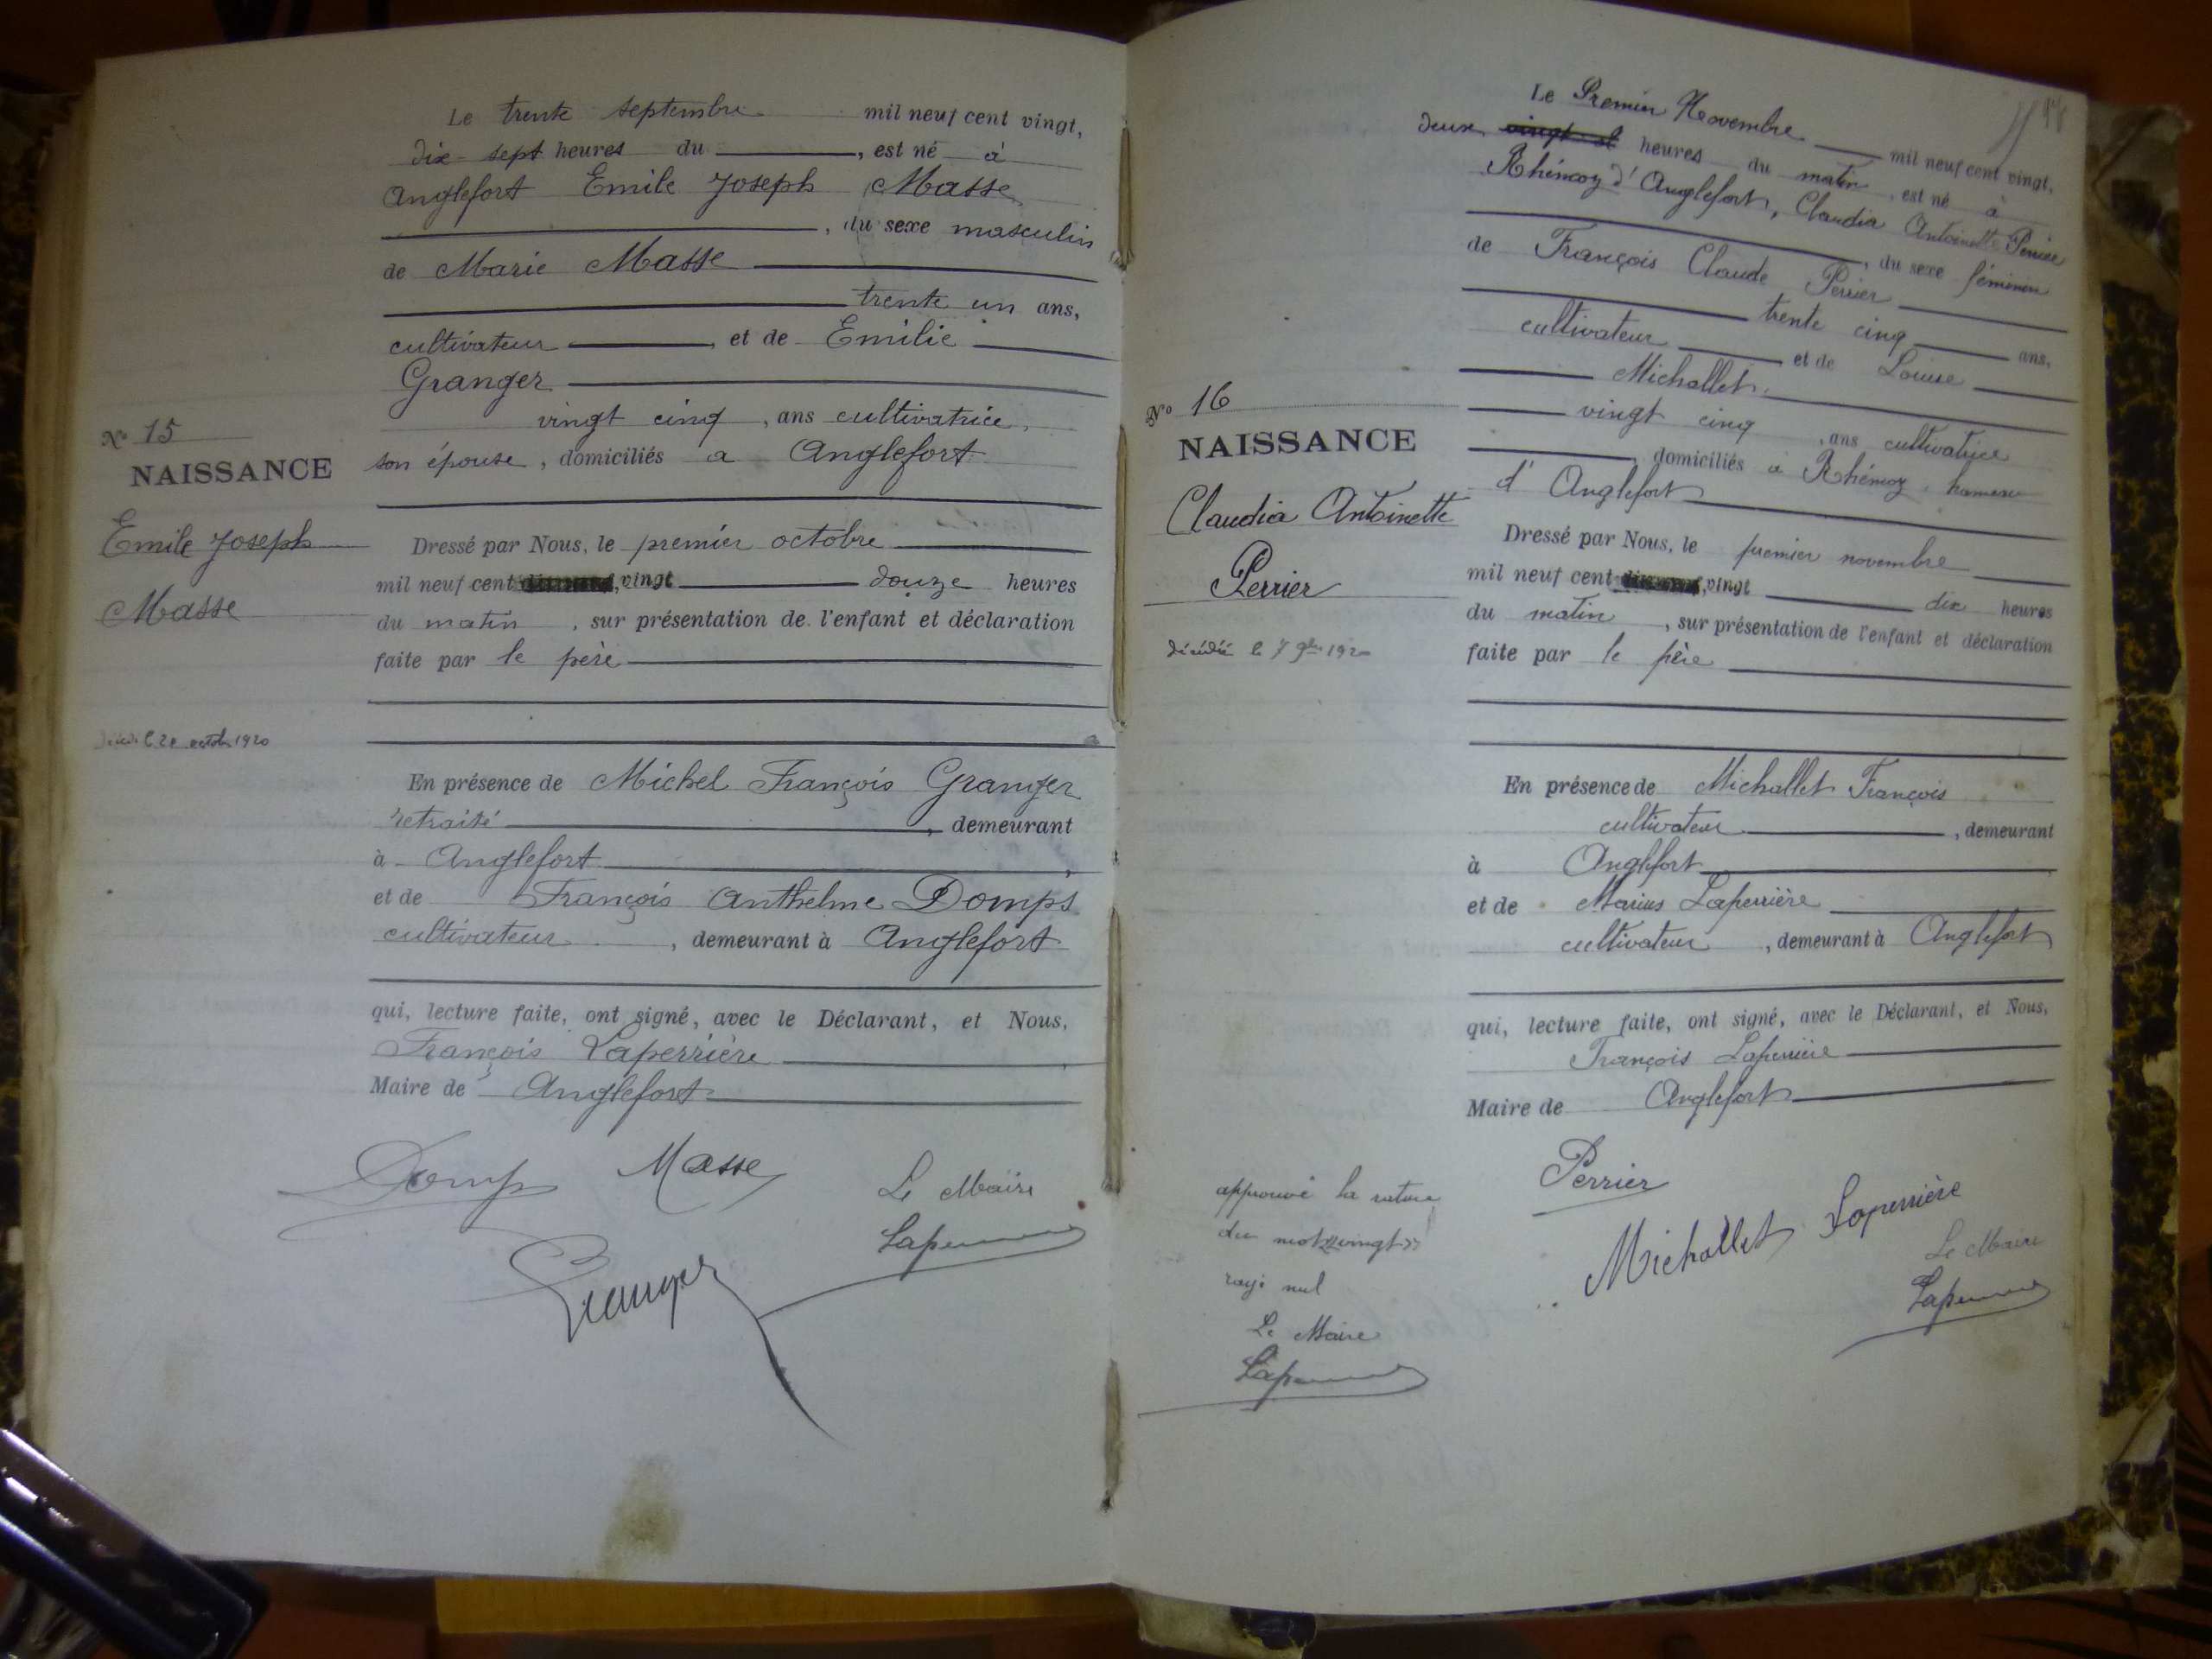 Le trente septembre mil neuf cent vingt,
dix-sept heures du , est né à
Anglefort Emile Joseph Masse
, du sexe masculin
de Marie Masse
trente un ans,
cultivateur , et de Emilie
Granger
vingt cinq , ans cultivatrice,
son épouse, domiciliés a Anglefort
No 15
NAISSANCE
Emile Joseph
Masse
octobre 1920
Dressé par Nous, le premier octobre
mil neuf cent vingt douze heures
du matin , sur présentation de l'enfant et déclaration
faite par le père
En présence de Michel François Granger
retraité , demeurant
à Anglefort
et de François Anthelme Domps
cultivateur , demeurant à Anglefort
qui, lecture faite, ont signé, avec le Déclarant, et Nous,
François Laperrière
Maire de Anglefort
Domp Masse
Le Maire
Granger
Le Premier Novembre mil neuf cent vingt,
deux vingt heures du matin , est né à
Rhémoz d'Anglefort, Claudia Antoinette Perrier
, du sexe féminin
de François Claude Perrier
trente cinq ans,
cultivateur et de Louise
Michallet
vingt cinq , ans cultivatrice
, domiciliés à Rhémoz hameau
d'Anglefort
No 16
NAISSANCE
Claudia Antoinette
Perrier
décédée le 7 9bre 1920
Dressé par Nous, le premier novembre
mil neuf cent vingt dix heures
du matin , sur présentation de l'enfant et déclaration
faite par le père
En présence de Michallet François
cultivateur , demeurant
à Anglefort
et de Marius Laperrière
cultivateur , demeurant à Anglefort
qui, lecture faite, ont signé, avec le Déclarant, et Nous,
François Laperrière
Maire de Anglefort
Perrier
Michallet Laperrière
Le Maire
approuvé la rature
du mot «vingt»
rayé nul
Le Maire